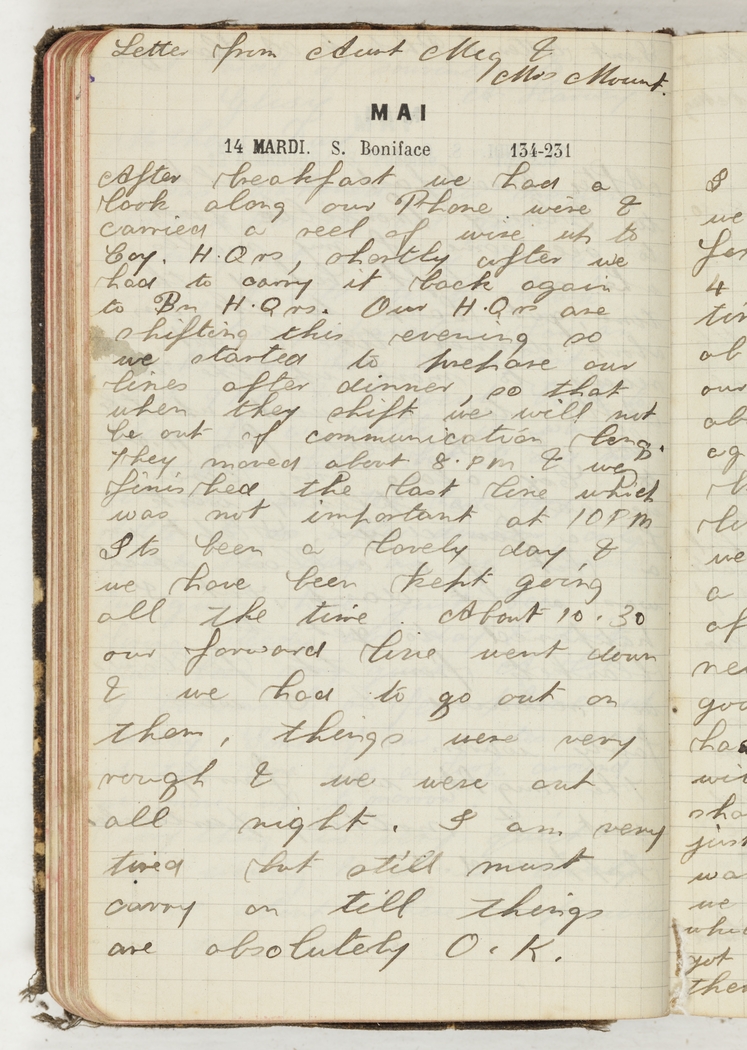 Letter from Aunt Meg &
Mrs Mount.
MAI
14 MARDI. S. Boniface 134-231
After breakfast we had a
look along our Phone wire &
carried a reel of wire up to
Coy. H.Qrs, shortly after we
had to carry it back again
to Bn H.Qrs. Our H.Qrs are
shifting this evening so
we started to prepare our
lines after dinner, so that
when they shift we will not
be out of communication long.
They moved about 8.PM & we
finished the last line which
was not important at 10PM
Its been a lovely day &
we have been kept going
all the time. About 10.30
our forward line went down
& we had to go out on
them, things were very
rough & we were out
all night. I am very
tired but still must
carry on till things
are absolutely O.K.
I
we
for
4
tin
ab
our
ab
ag
we
a
of
ne
goo
has
wi
sho
just
was
we
whi
got
then